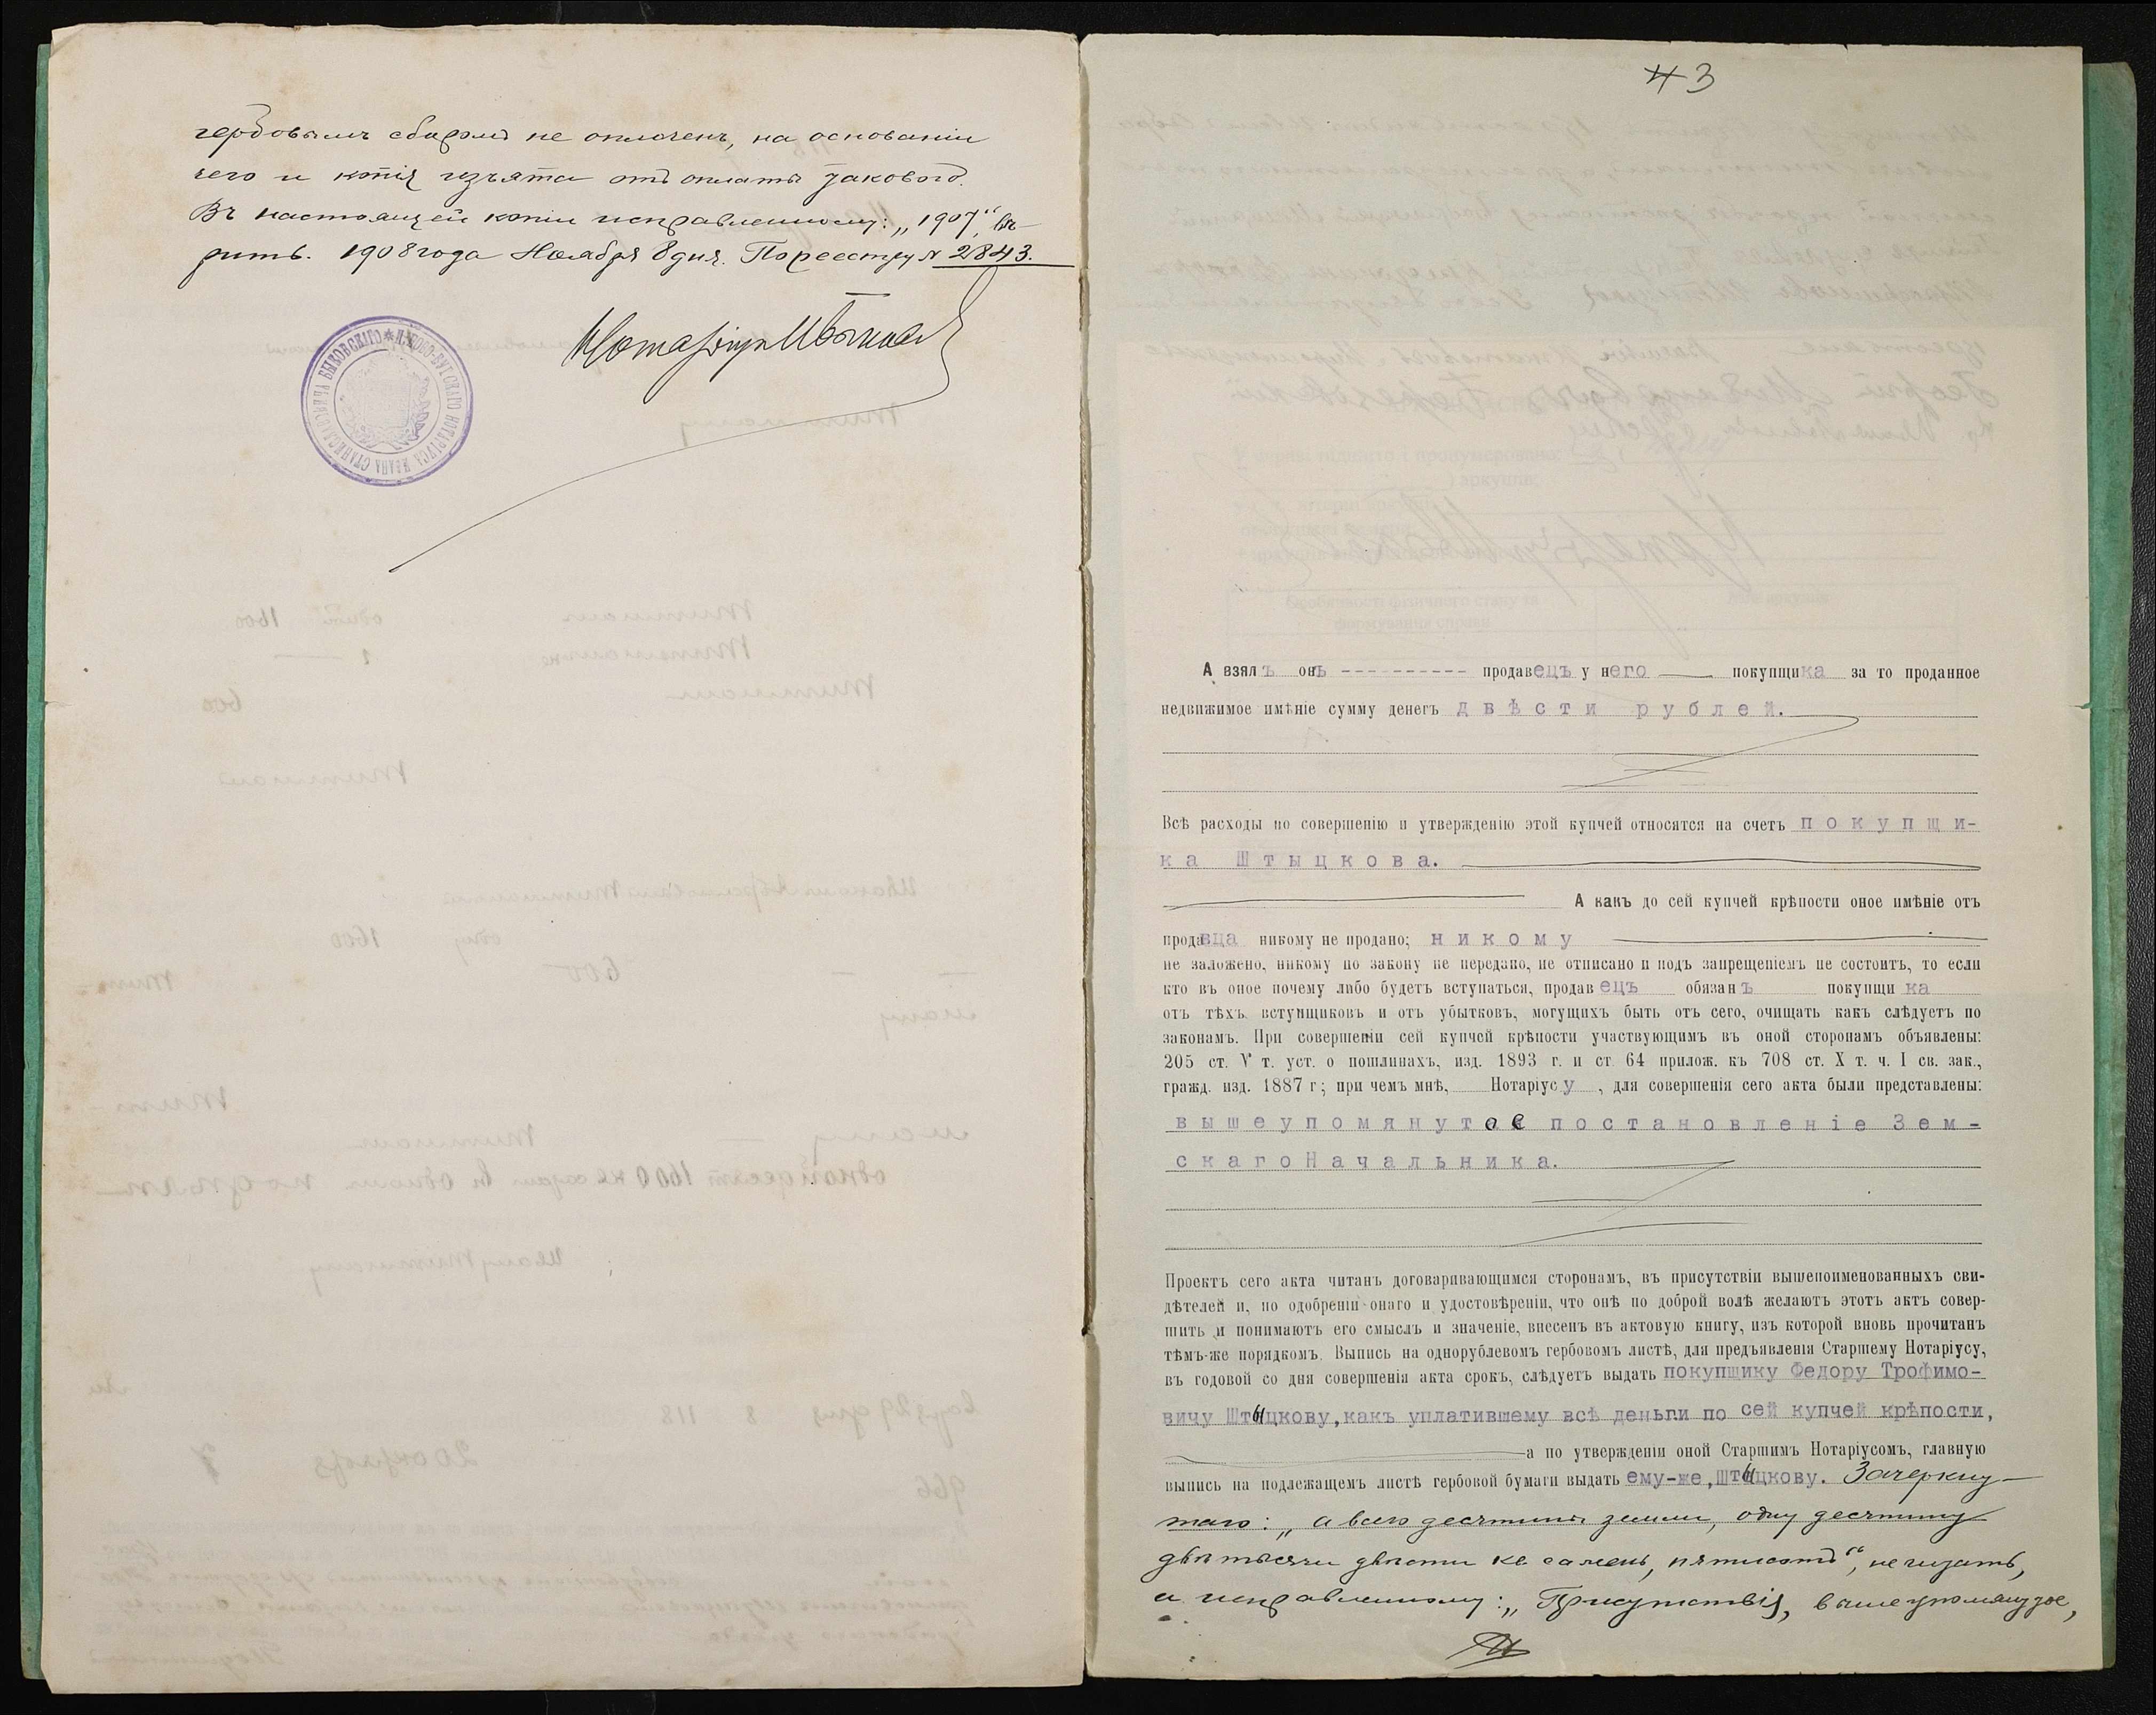 гербовымъ сборомъ не оплаченъ, на основаніи
чего и копія изъята отъ оплаты таковаго.
Въ настоящей копіи исправленному: „1907“, вѣ-
рить. 1908 года Ноября 8 дня. По реестру № 2843.
Нотаріусъ
БЫКОВСКАГО * НОТАРІУСА ИВАНА СТАНИСЛАВОВИЧА
3
А взялъ онъ ---------- продавецъ у него покупщика за то проданное
недвижимое имѣніе сумму денегъ двѣсти рублей.
Всѣ расходы по совершенію и утвержденію этой купчей относятся на счетъ покупщи-
ка Штыцкова.
А какъ до сей купчей крѣпости оное имѣніе отъ
продавца никому не продано; никому
не заложено, никому по закону не передано, не отписано и подъ запрещеніемъ не состоитъ, то если
кто въ оное почему либо будетъ вступаться, продавецъ обязанъ покупщика
отъ тѣхъ вступщиковъ и отъ убытковъ, могущихъ быть отъ сего, очищать какъ слѣдуетъ по
законамъ. При совершеніи сей купчей крѣпости участвующимъ въ оной сторонамъ объявлены:
205 ст. V т. уст. о пошлинахъ, изд. 1893 г. и ст. 64 прилож. къ 708 ст. X т. ч. I св. зак.,
гражд. изд. 1887 г; при чемъ мнѣ, Нотаріусу, для совершенія сего акта были представлены:
вышеупомянутое постановленіе Зем-
скаго Начальника.
Проектъ сего акта читанъ договаривающимся сторонамъ, въ присутствіи вышепоименованныхъ сви-
дѣтелей и, по одобреніи онаго и удостовѣреніи, что онѣ по доброй волѣ желаютъ этотъ актъ совер-
шить и понимаютъ его смыслъ и значеніе, внесенъ въ актовую книгу, изъ которой вновь прочитанъ
тѣмъ-же порядкомъ. Выпись на однорублевомъ гербовомъ листѣ, для предъявленія Старшему Нотаріусу,
въ годовой со дня совершенія акта срокъ, слѣдуетъ выдать покупщику Федору Трофимо-
вичу Штыцкову, какъ уплатившему всѣ деньги по сей купчей крѣпости,
а по утвержденіи оной Старшимъ Нотаріусомъ, главную
выпись на подлежащемъ листѣ гербовой бумаги выдать ему-же, Штыцкову. Зачеркну-
таго: „а всего десятины земли, одну десятину
двѣ тысячи двѣсти кв. сажень, пятисотъ“, не читать,
а исправленному: „Присутствія, вышеупомянутое,